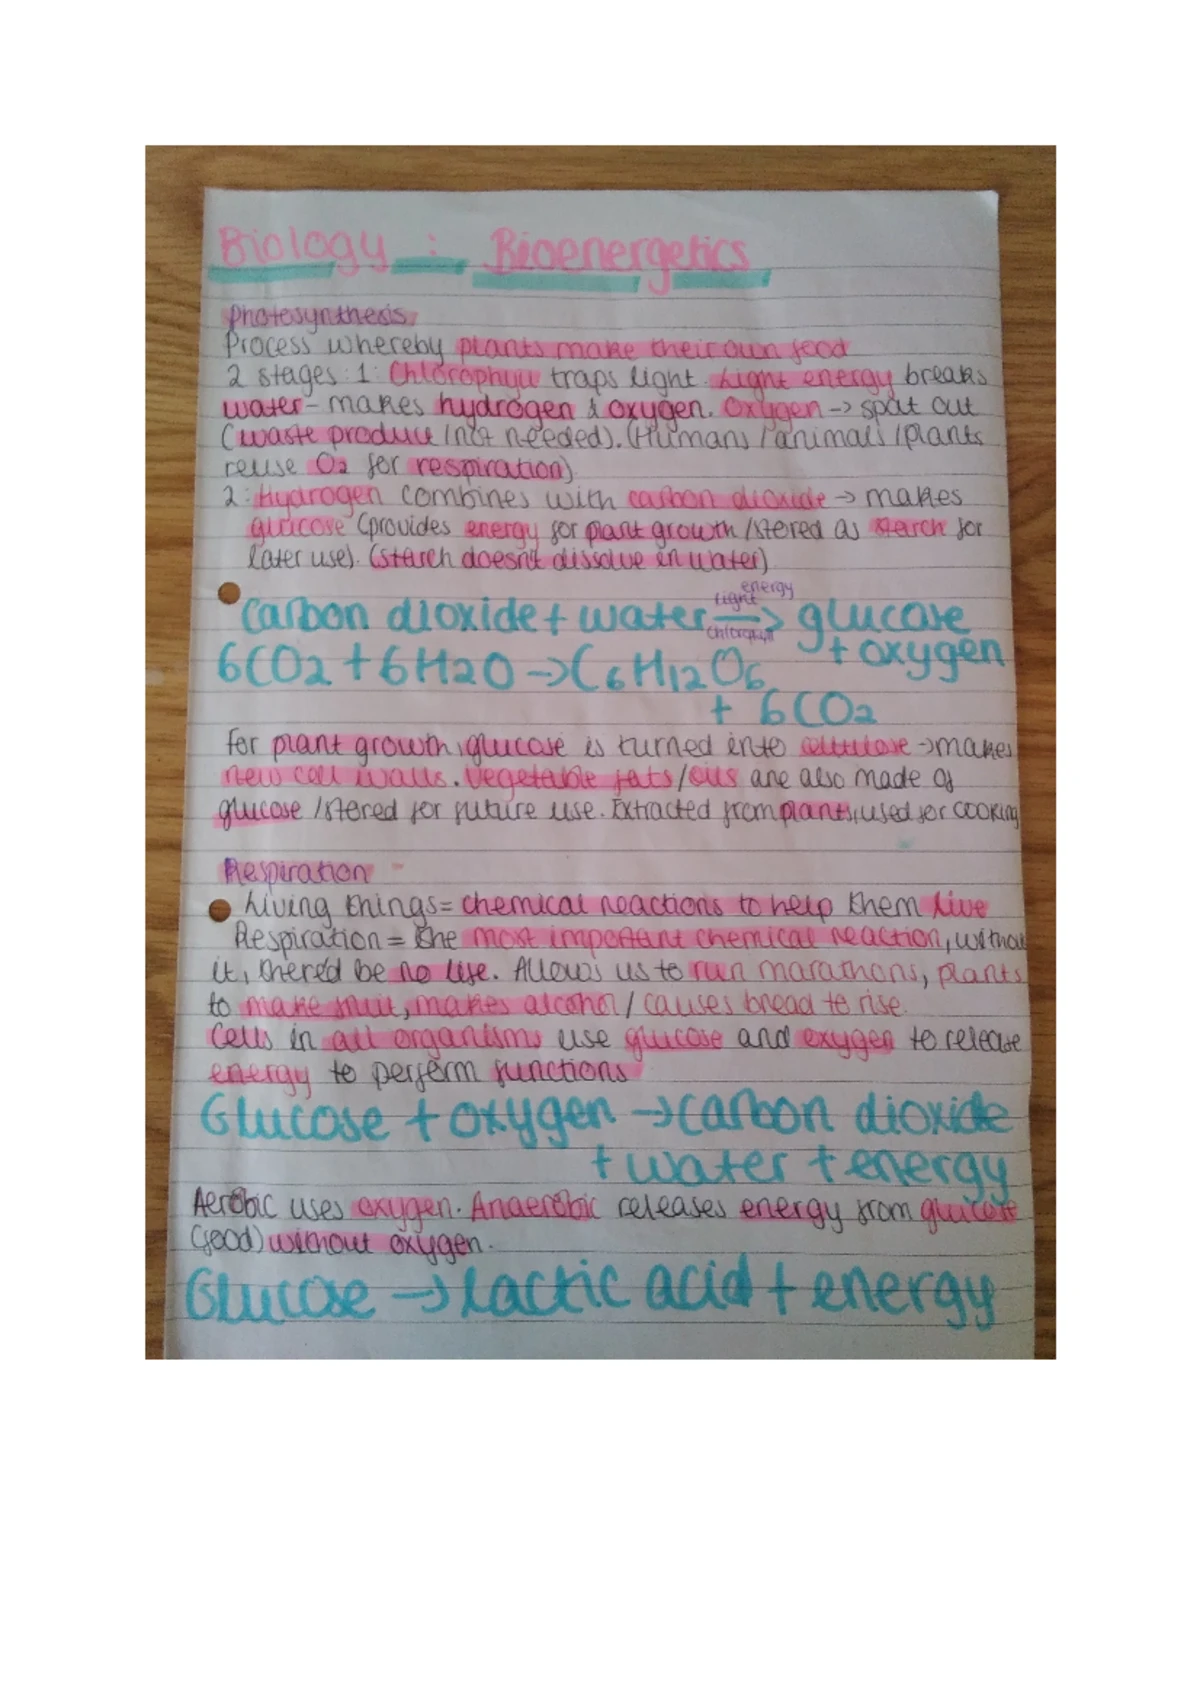 Biology : Bioenergetics
Photosynthesis
Process whereby plants make their own food
2 stages: 1: Chlorophyll traps light. Light energy breaks
water - makes hydrogen & oxygen. Oxygen -> spat out
(waste product / not needed). (Humans / animals / plants
reuse O2 for respiration)
2: Hydrogen combines with carbon dioxide -> makes
glucose (provides energy for plant growth / stored as starch for
later use). (starch doesn't dissolve in water)
energy
light
Carbon dioxide + water -> glucose
chlorophyll
+ oxygen
6CO2 + 6H2O -> C6H12O6
+ 6CO2
for plant growth, glucose is turned into cellulose -> makes
new cell walls. Vegetable fats / oils are also made of
glucose / stored for future use. Extracted from plants, used for cooking
Respiration
Living things = chemical reactions to help them live
Respiration = the most important chemical reaction, without
it, there'd be no life. Allows us to run marathons, plants
to make fruit, makes alcohol / causes bread to rise.
Cells in all organisms use glucose and oxygen to release
energy to perform functions
Glucose + oxygen -> carbon dioxide
+ water + energy
Aerobic uses oxygen. Anaerobic releases energy from glucose
(food) without oxygen.
Glucose -> lactic acid + energy